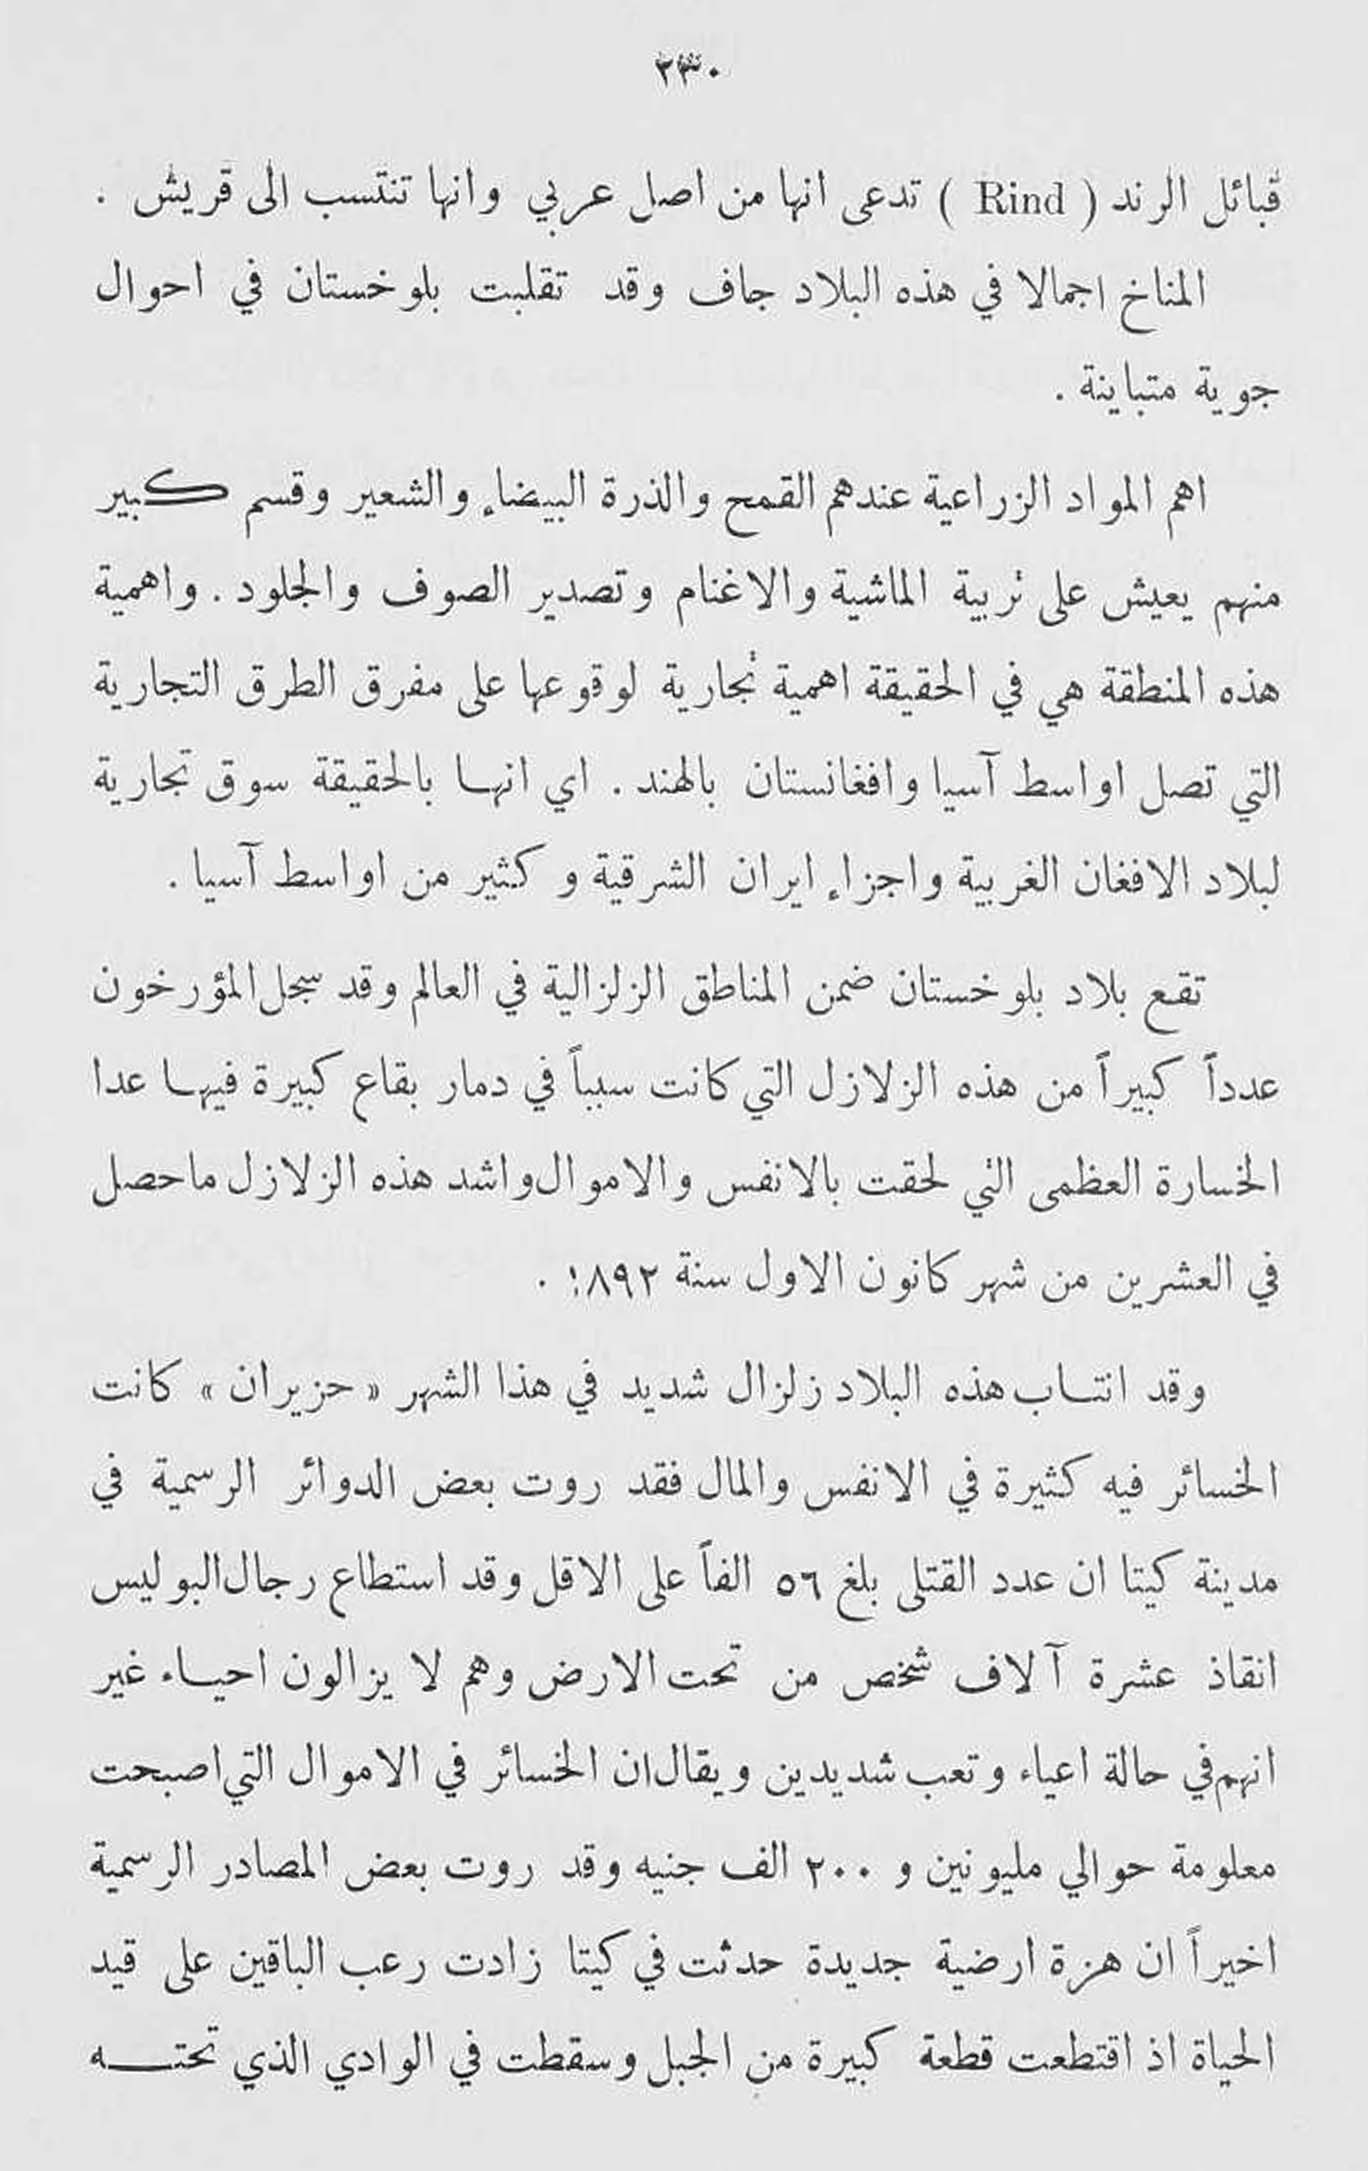 ٢٣٠
قبائل الرند ( Rind ) تدعى انها من اصل عربي وانها تنتسب الى قريش .
المناخ اجمالا في هذه البلاد جاف وقد تقلبت بلوخستان في احوال
جوية متباينة .
اهم المواد الزراعية عندهم القمح والذرة البيضاء والشعير وقسم كبير
منهم يعيش على تربية الماشية والاغنام وتصدير الصوف والجلود . واهمية
هذه المنطقة هي في الحقيقة اهمية تجارية لوقوعها على مفرق الطرق التجارية
التي تصل اواسط آسيا وافغانستان بالهند . اي انها بالحقيقة سوق تجارية
لبلاد الافغان الغربية واجزاء ايران الشرقية وكثير من اواسط آسيا .
تقع بلاد بلوخستان ضمن المناطق الزلزالية في العالم وقد سجل المؤرخون
عدداً كبيراً من هذه الزلازل التي كانت سبباً في دمار بقاع كبيرة فيها عدا
الخسارة العظمى التي لحقت بالانفس والاموال واشد هذه الزلازل ما حصل
في العشرين من شهر كانون الاول سنة ١٨٩٢ .
وقد انتاب هذه البلاد زلزال شديد في هذا الشهر « حزيران » كانت
الخسائر فيه كثيرة في الانفس والمال فقد روت بعض الدوائر الرسمية في
مدينة كيتا ان عدد القتلى بلغ ٥٦ الفاً على الاقل وقد استطاع رجال البوليس
انقاذ عشرة آلاف شخص من تحت الارض وهم لا يزالون احياء غير
انهم في حالة اعياء وتعب شديدين ويقال ان الخسائر في الاموال التي اصبحت
معلومة حوالي مليونين و ٢٠٠ الف جنيه وقد روت بعض المصادر الرسمية
اخيراً ان هزة ارضية جديدة حدثت في كيتا زادت رعب الباقين على قيد
الحياة اذ اقتطعت قطعة كبيرة من الجبل وسقطت في الوادي الذي تحتـه